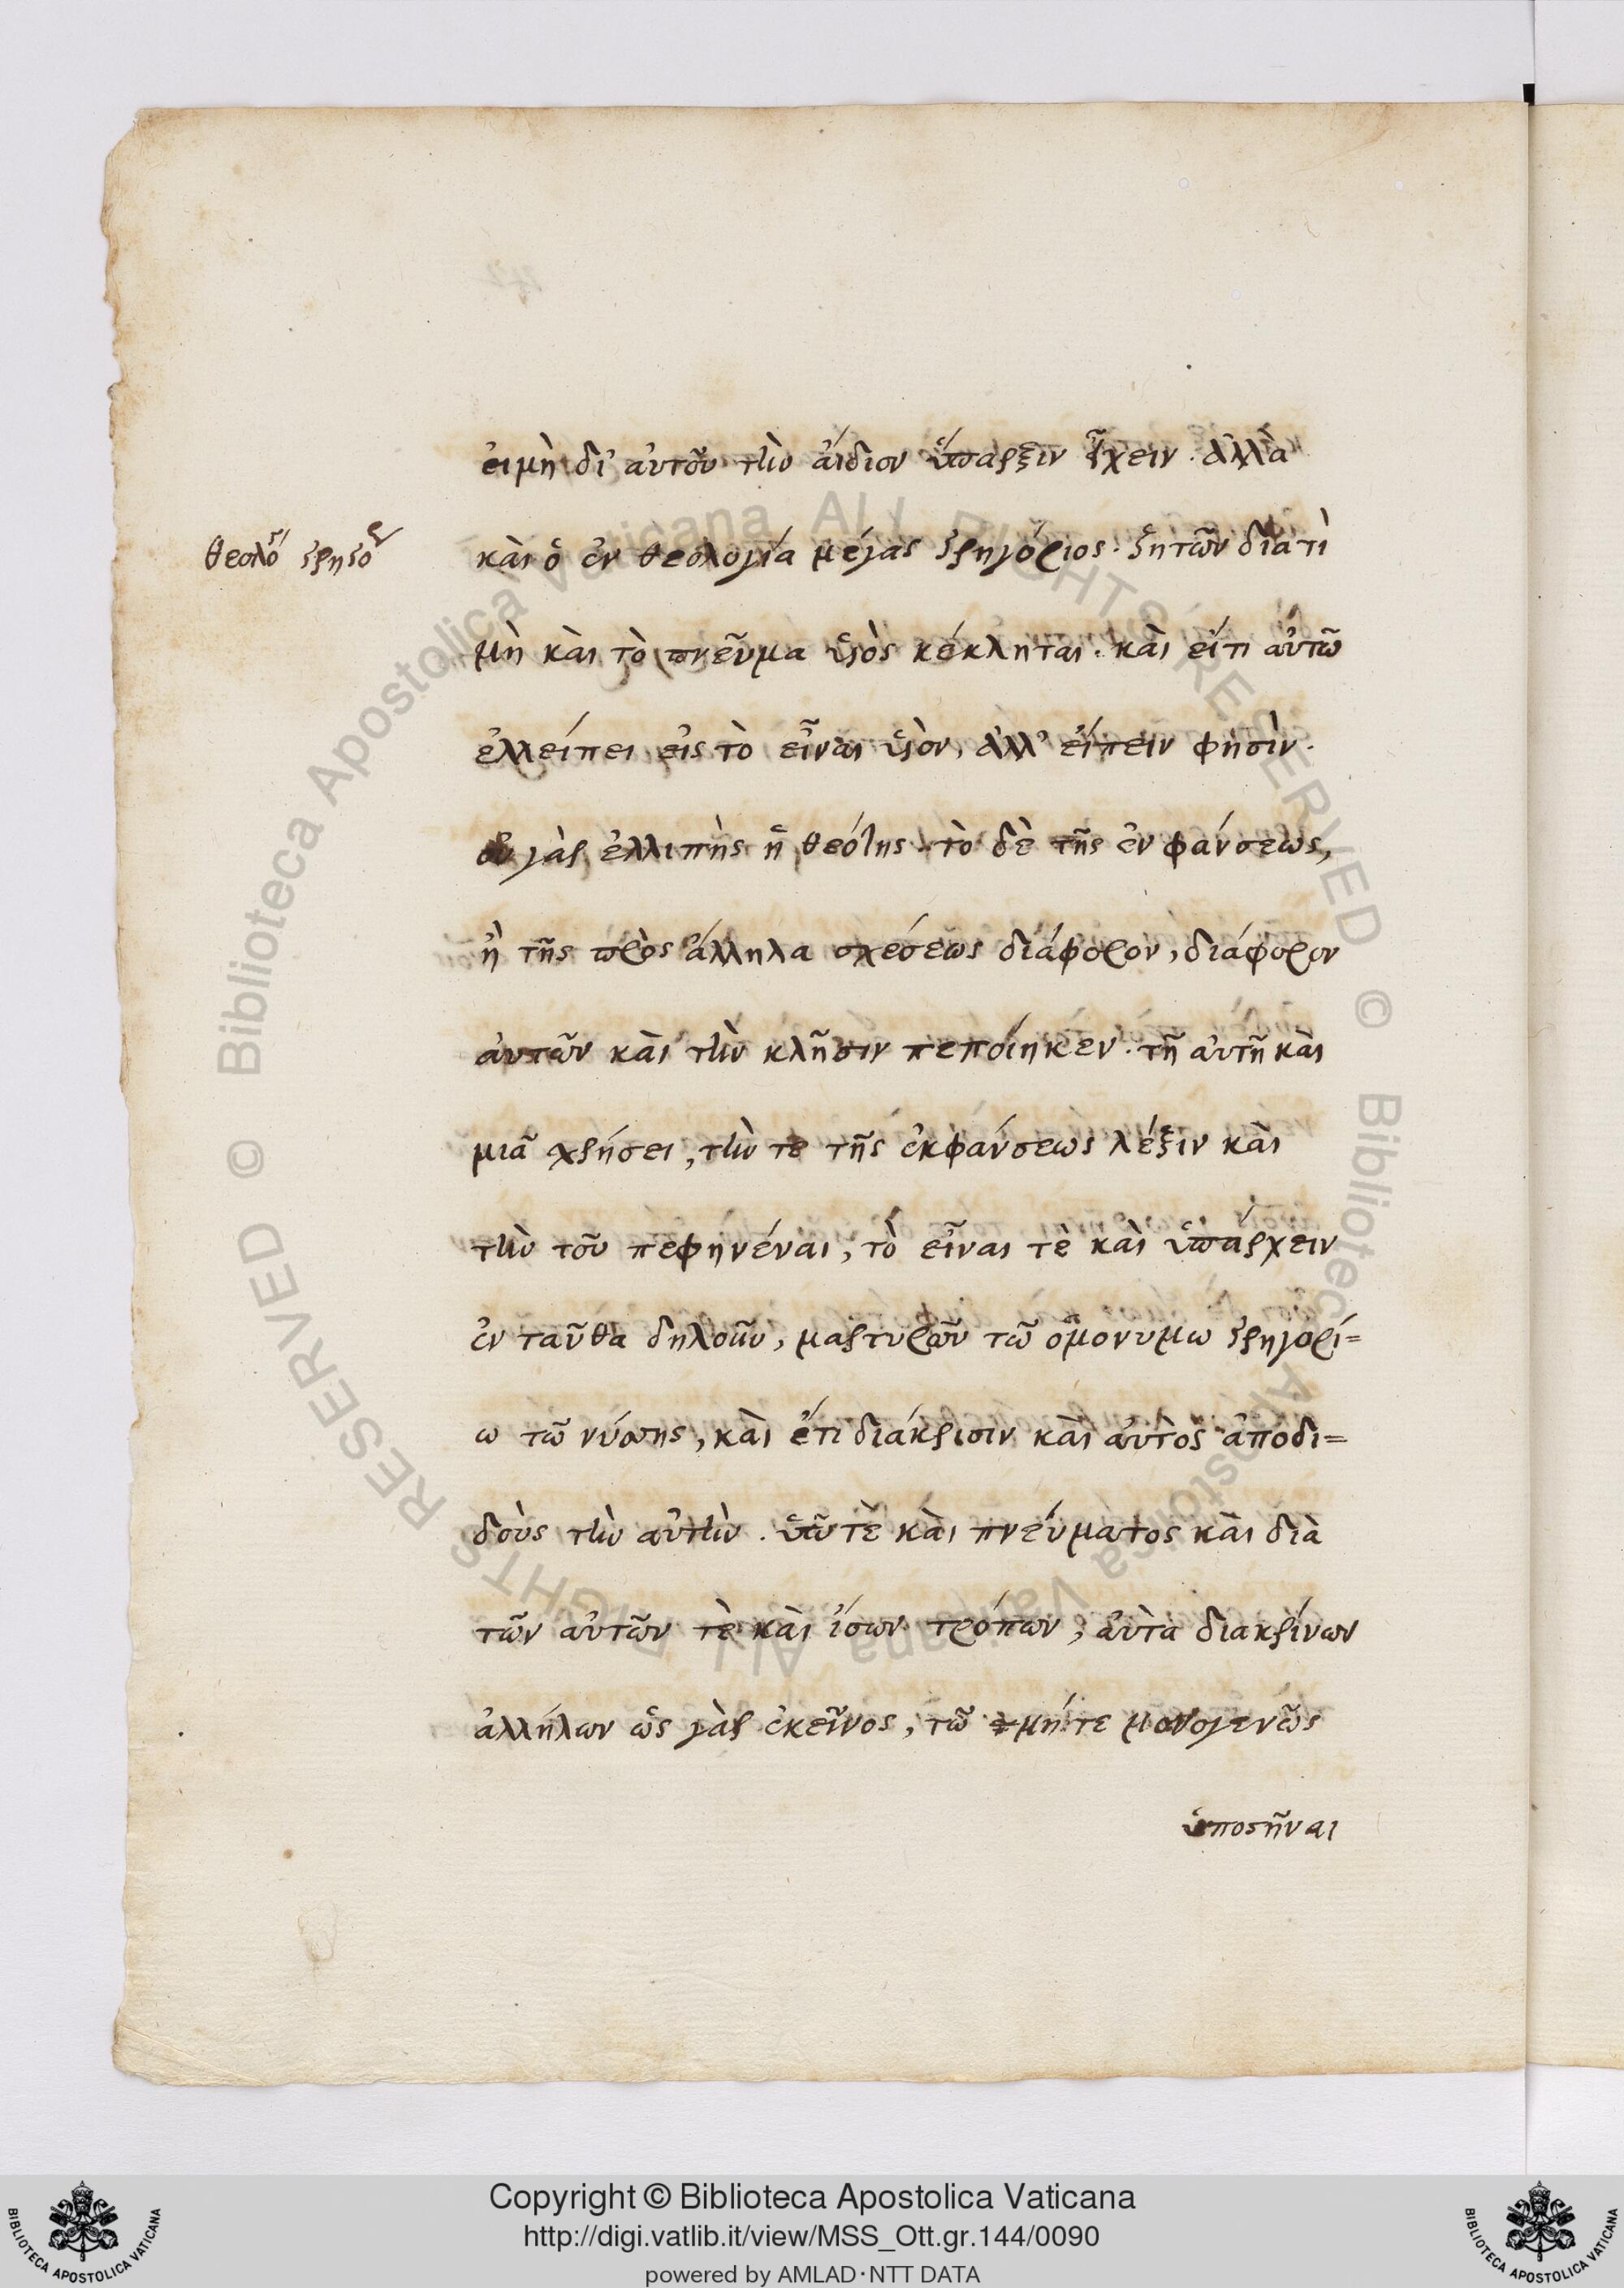 ἐιμὴ δι' ἀυτοῦ τὴν ἀΐδιον ὕπαρξιν ἔχειν. ἀλλὰ
θεολό γρηγό
κὰι ὁ ἐν θεολογία μέγας γρηγόριος. ζητῶν διατὶ
μὴ κὰι τὸ πνεῦμα ὑιὸς κέκληται. κὰι εἴτι ἀυτῶ
ἐλλείπει εἰς τὸ εἶναι ὑιὸν, ἀλλ' εἴπειν φησὶν.
οὐ γὰρ ἐλλιπὴς ἡ θεότης. τὸ δὲ τῆς ἐν φάνσεως,
ἢ τῆς πρὸς ἄλληλα σχέσεως διάφορον, διάφορον
ἀυτῶν κὰι τὴν κλῆσιν πεποίηκεν. τῆ ἀυτῆ κὰι
μιᾶ χρήσει, τὴν τε τῆς ἐκφάνσεως λέξιν κὰι
τὴν τοῦ πεφηνέναι, τὸ εἶναι τὲ κὰι ὑπάρχειν
ἐν ταῦθα δηλοῦν, μαρτυρῶν τῶ ὁμονυμω γρηγορί=
ω τῶ νύσης, κὰι ἔτι διάκρισιν κὰι ἀυτὸς ἀποδι=
δοὺς τὴν ἀυτὴν. ὑιοῦ τὲ κὰι πνεύματος κὰι διὰ
τῶν ἀυτῶν τὲ κὰι ἴσων τρόπων, ἀυτὰ διακρίνων
ἀλλήλων ὡς γὰρ ἐκεῖνος, τῶ μήτε μονογενῶς
ὑποστῆναι
Copyright © Biblioteca Apostolica Vaticana
http://digi.vatlib.it/view/MSS_Ott.gr.144/0090
powered by AMLAD·NTT DATA
BIBLIOTECA APOSTOLICA VATICANA
BIBLIOTECA APOSTOLICA VATICANA
© Biblioteca Apostolica Vaticana ALL RIGHTS RESERVED
© Biblioteca Apostolica Vaticana ALL RIGHTS RESERVED